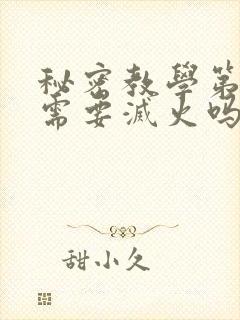 秘密教學第
需要滅火吗
甜小久